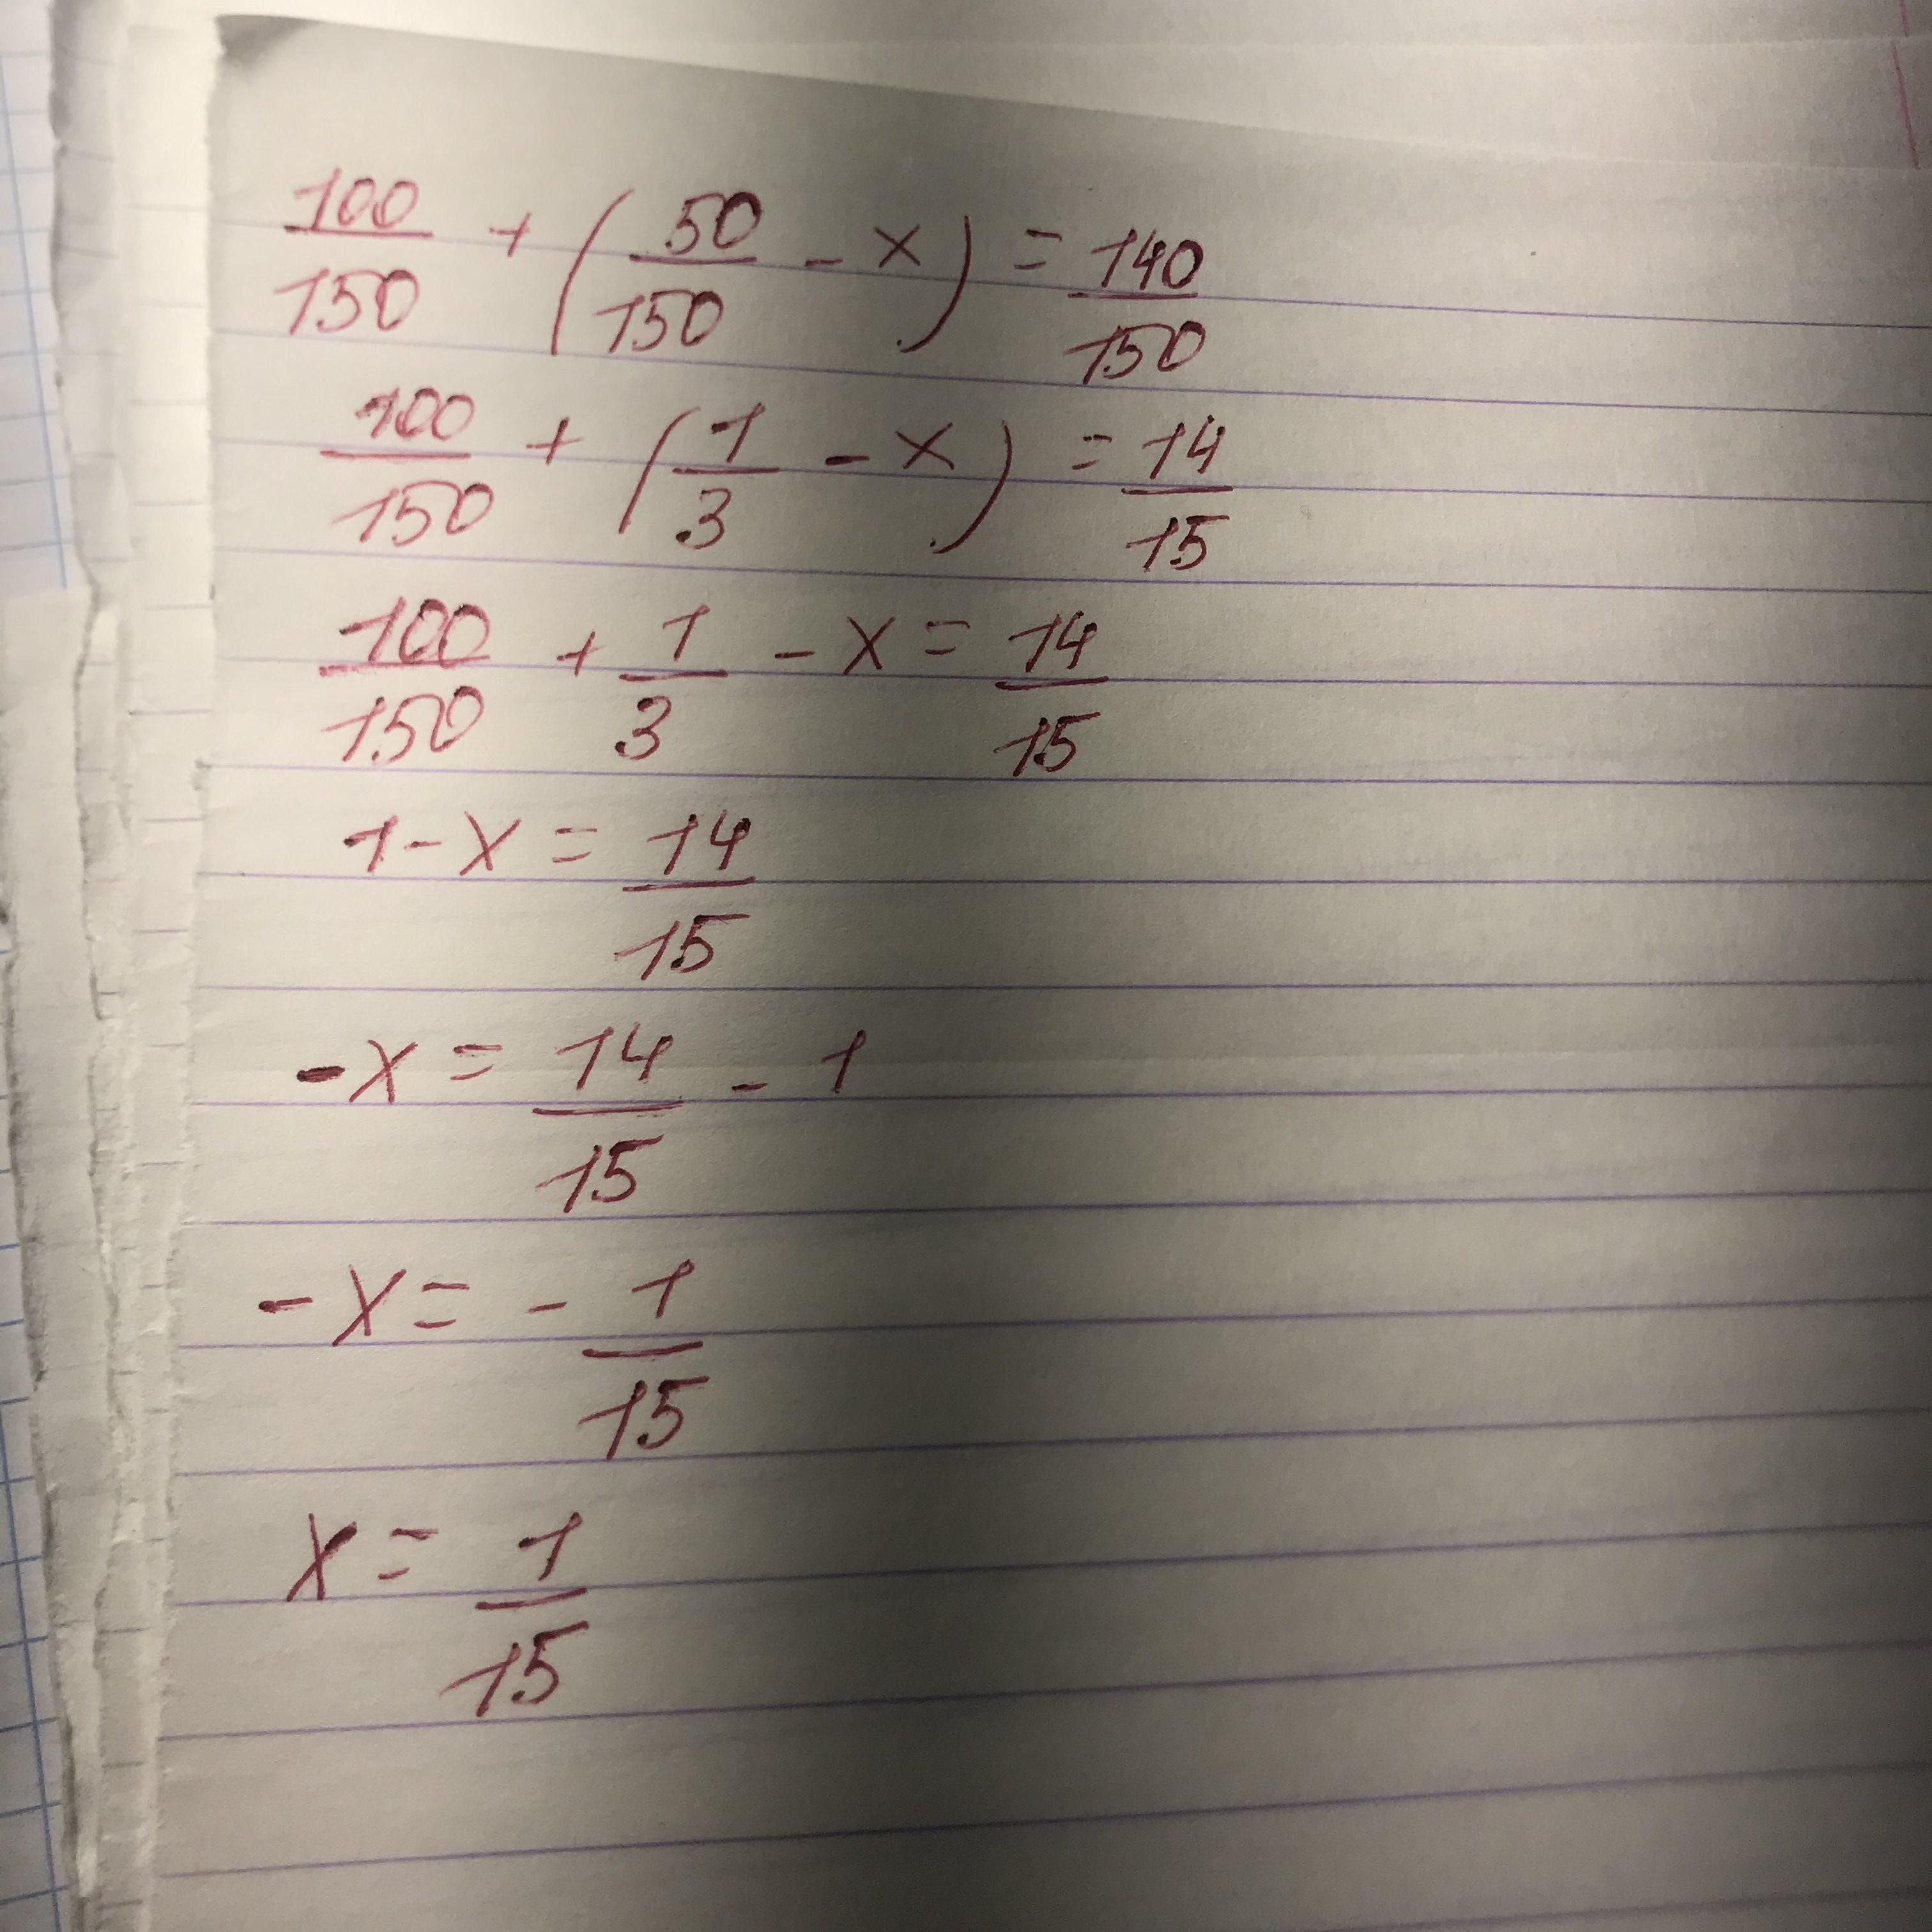 100/150 + (50/150 - x) = 140/150
100/150 + (1/3 - x) = 14/15
100/150 + 1/3 - x = 14/15
1 - x = 14/15
-x = 14/15 - 1
-x = - 1/15
x = 1/15